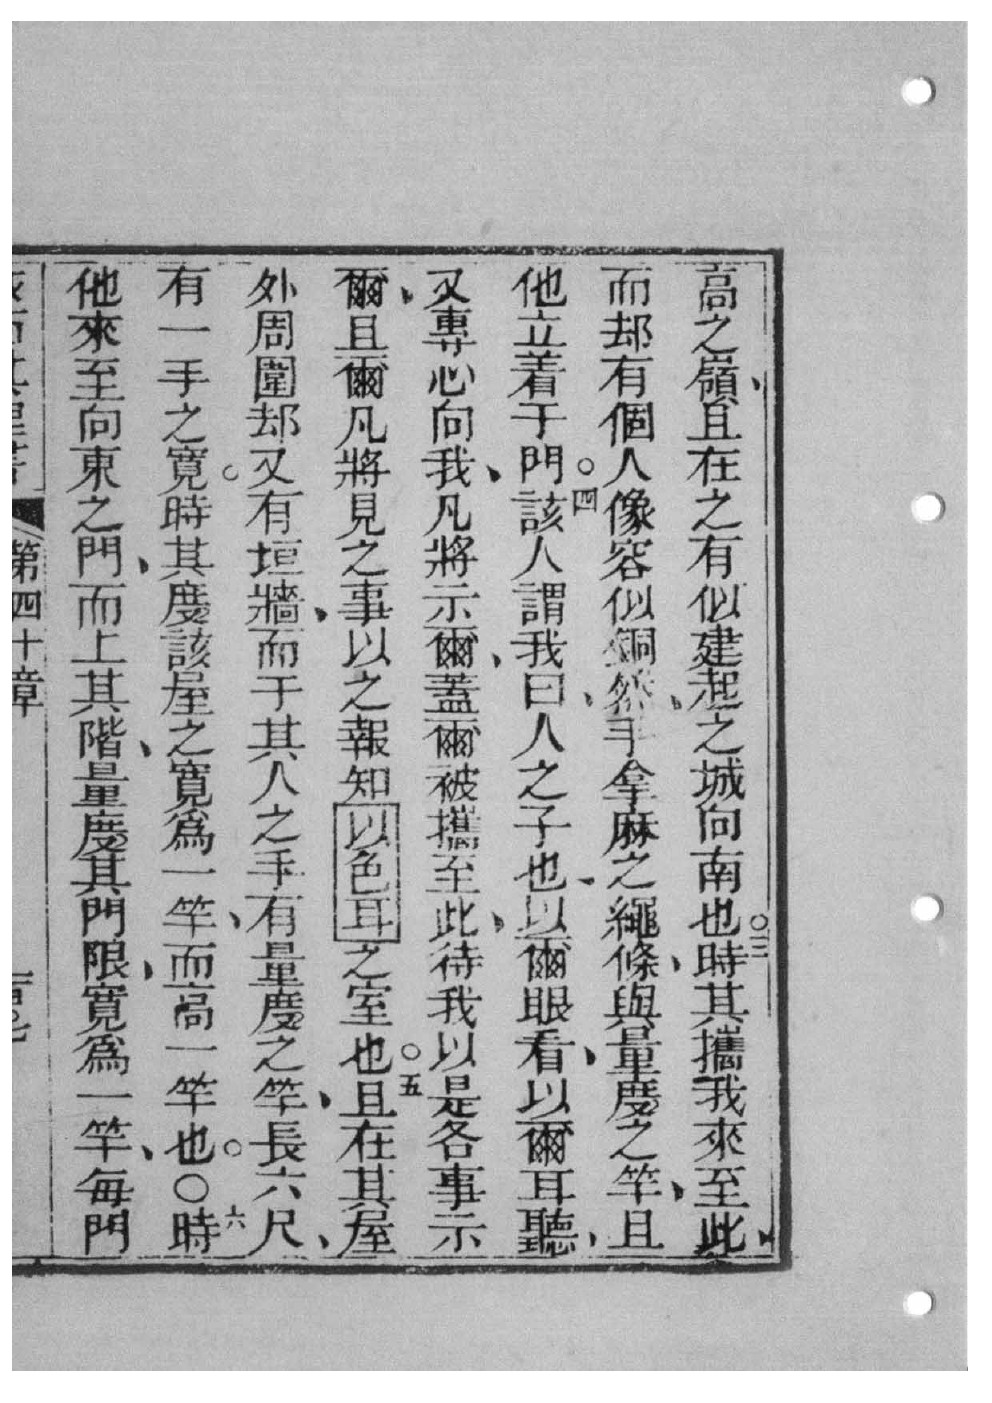 高之嶺、且在之有似建起之城向南也。三時其攜我來至此、
而却有個人像容似銅然、手拿麻之繩條、與量度之竿、且
他立着于門。四該人謂我曰、人之子也、以爾眼看、以爾耳聽、
又專心向我、凡將示爾、蓋爾被攜至此、待我以是各事示
爾、且爾凡將見之事以之報知以色耳之室也。五且在其屋
外周圍却又有垣牆、而于其人之手有量度之竿、長六尺、
有一手之寬。時其度該屋之寬爲一竿、而高一竿也。○六時
他來至向東之門、而上其階、量度其門限、寬爲一竿、每門
第四十章